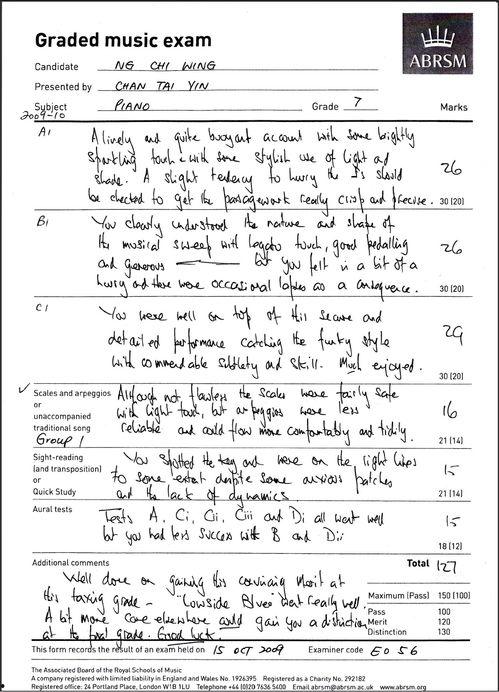 Graded music exam
ABRSM
Candidate NG CHI WING
Presented by CHAN TAI YIN
Subject PIANO Grade 7 Marks
2009-10
A1 A lively and quite buoyant account with some brightly
sparkling touch & with some stylish use of light and
shade. A slight tendency to hurry the should
be checked to get the passagework really crisp and precise.
26
30 (20)
B1 You clearly understood the nature and shape of
the musical sweep with legato touch, good pedalling
and generous but you felt in a bit of a
hurry and there were occasional lapses as a consequence.
26
30 (20)
C1 You were well on top of this secure and
detailed performance catching the funky style
with commendable subtlety and skill. Much enjoyed.
29
30 (20)
Scales and arpeggios
or
unaccompanied
traditional song
Group 1
Although not flawless the scales were fairly safe
with light touch, but arpeggios were less
reliable and could flow more comfortably and tidily.
16
21 (14)
Sight-reading
(and transposition)
or
Quick Study
You spotted the key and were on the right lines
to some extent despite some anxious patches
and the lack of dynamics.
15
21 (14)
Aural tests
Tests A, Ci, Cii, Ciii and Di all went well
but you had less success with B and Dii
15
18 (12)
Additional comments Total 127
Well done on gaining this convincing Merit at
this taxing grade - "Lowside Blues" went really well.
A bit more care elsewhere could gain you a distinction
at the final grade. Good luck.
Maximum (Pass) 150 (100)
Pass 100
Merit 120
Distinction 130
This form records the result of an exam held on 15 OCT 2009 Examiner code E056
The Associated Board of the Royal Schools of Music
A company registered with limited liability in England and Wales No. 1926395 Registered as a Charity No. 292182
Registered office: 24 Portland Place, London W1B 1LU Telephone +44 (0)20 7636 5400 Email abrsm@abrsm.ac.uk www.abrsm.org